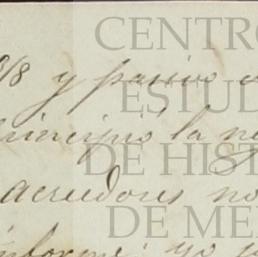 CENTRO
8/8 y pasivo
ESTUD
principió la
DE HIST
acreedores no
DE ME
informe yo